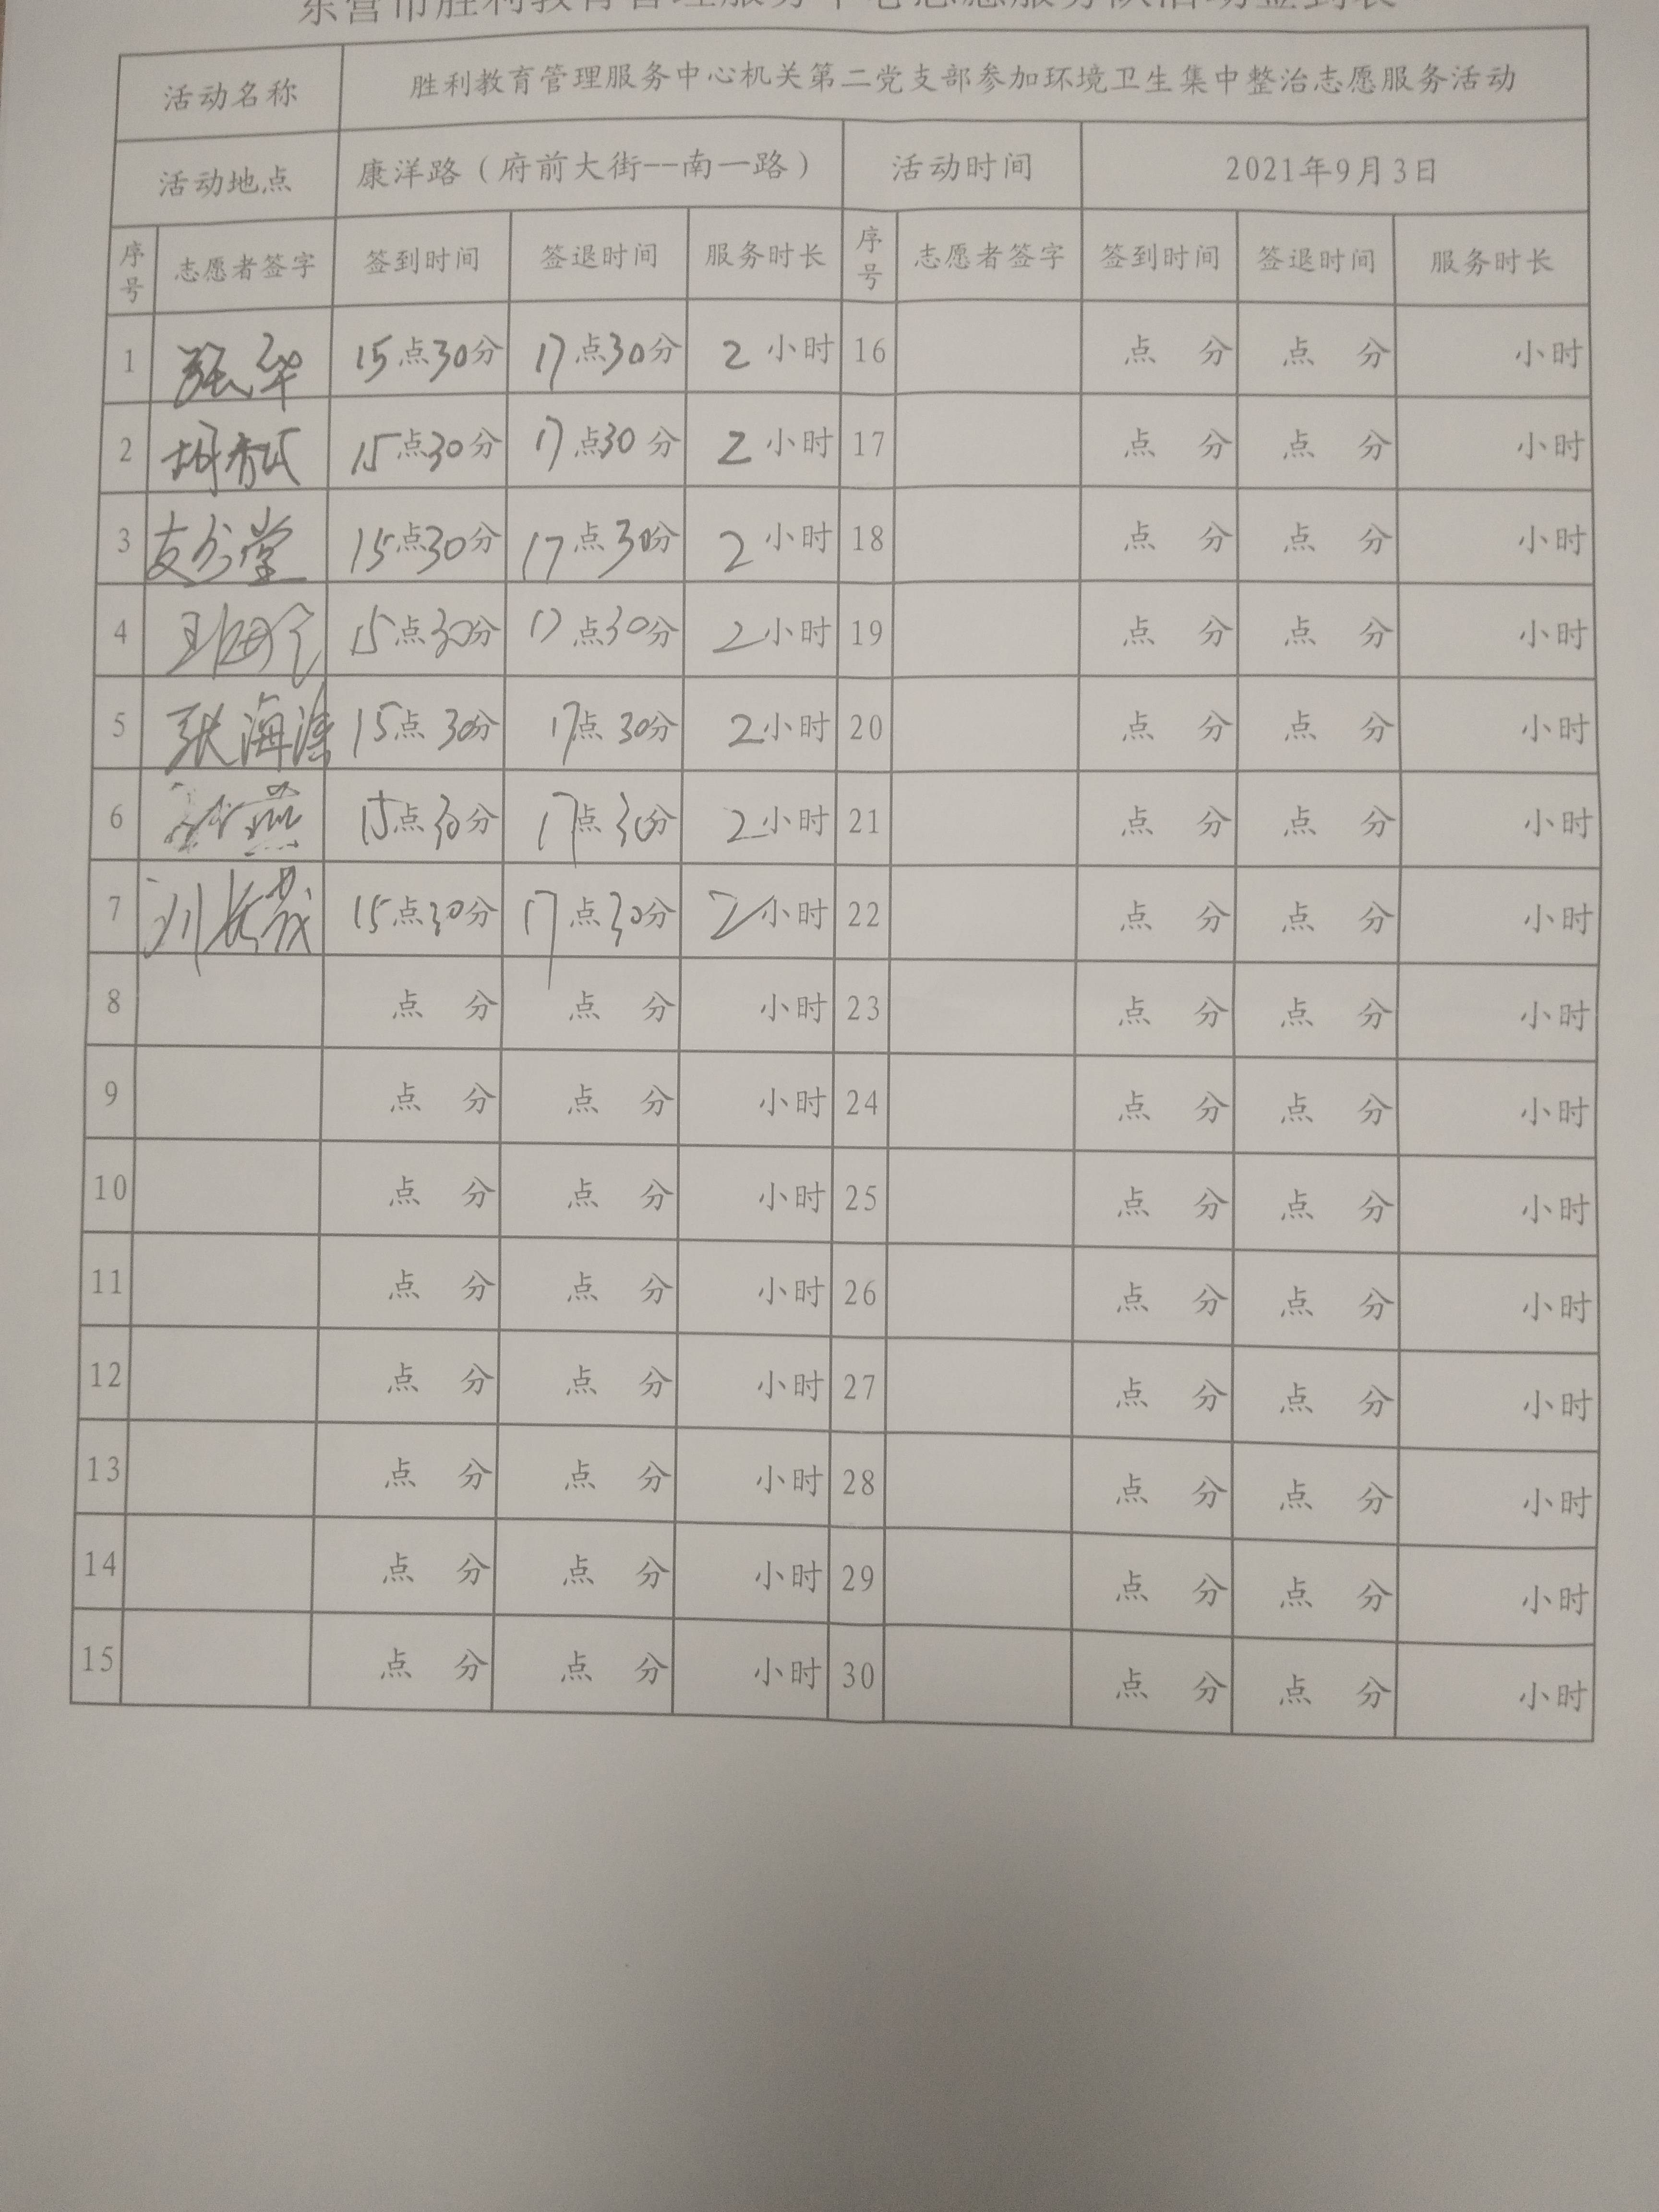 东营市胜利教育管理服务中心志愿服务队活动签到表
活动名称 胜利教育管理服务中心机关第二党支部参加环境卫生集中整治志愿服务活动
活动地点 康洋路（府前大街--南一路） 活动时间 2021年9月3日
序号 志愿者签字 签到时间 签退时间 服务时长 序号 志愿者签字 签到时间 签退时间 服务时长
1 张华 15点30分 17点30分 2小时 16 点 分 点 分 小时
2 15点30分 17点30分 2小时 17 点 分 点 分 小时
3 15点30分 17点30分 2小时 18 点 分 点 分 小时
4 15点30分 17点30分 2小时 19 点 分 点 分 小时
5 张海涛 15点30分 17点30分 2小时 20 点 分 点 分 小时
6 燕 15点30分 17点30分 2小时 21 点 分 点 分 小时
7 刘长茂 15点30分 17点30分 2小时 22 点 分 点 分 小时
8 点 分 点 分 小时 23 点 分 点 分 小时
9 点 分 点 分 小时 24 点 分 点 分 小时
10 点 分 点 分 小时 25 点 分 点 分 小时
11 点 分 点 分 小时 26 点 分 点 分 小时
12 点 分 点 分 小时 27 点 分 点 分 小时
13 点 分 点 分 小时 28 点 分 点 分 小时
14 点 分 点 分 小时 29 点 分 点 分 小时
15 点 分 点 分 小时 30 点 分 点 分 小时